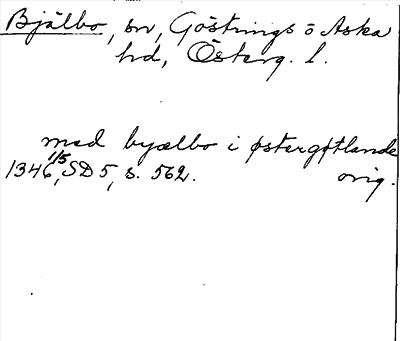 Bjälbo, sn, Göstrings o Aska
hd, Österg. l.
med byælbo i østergøtlande
1346 1/5, SD 5, s. 562. orig.